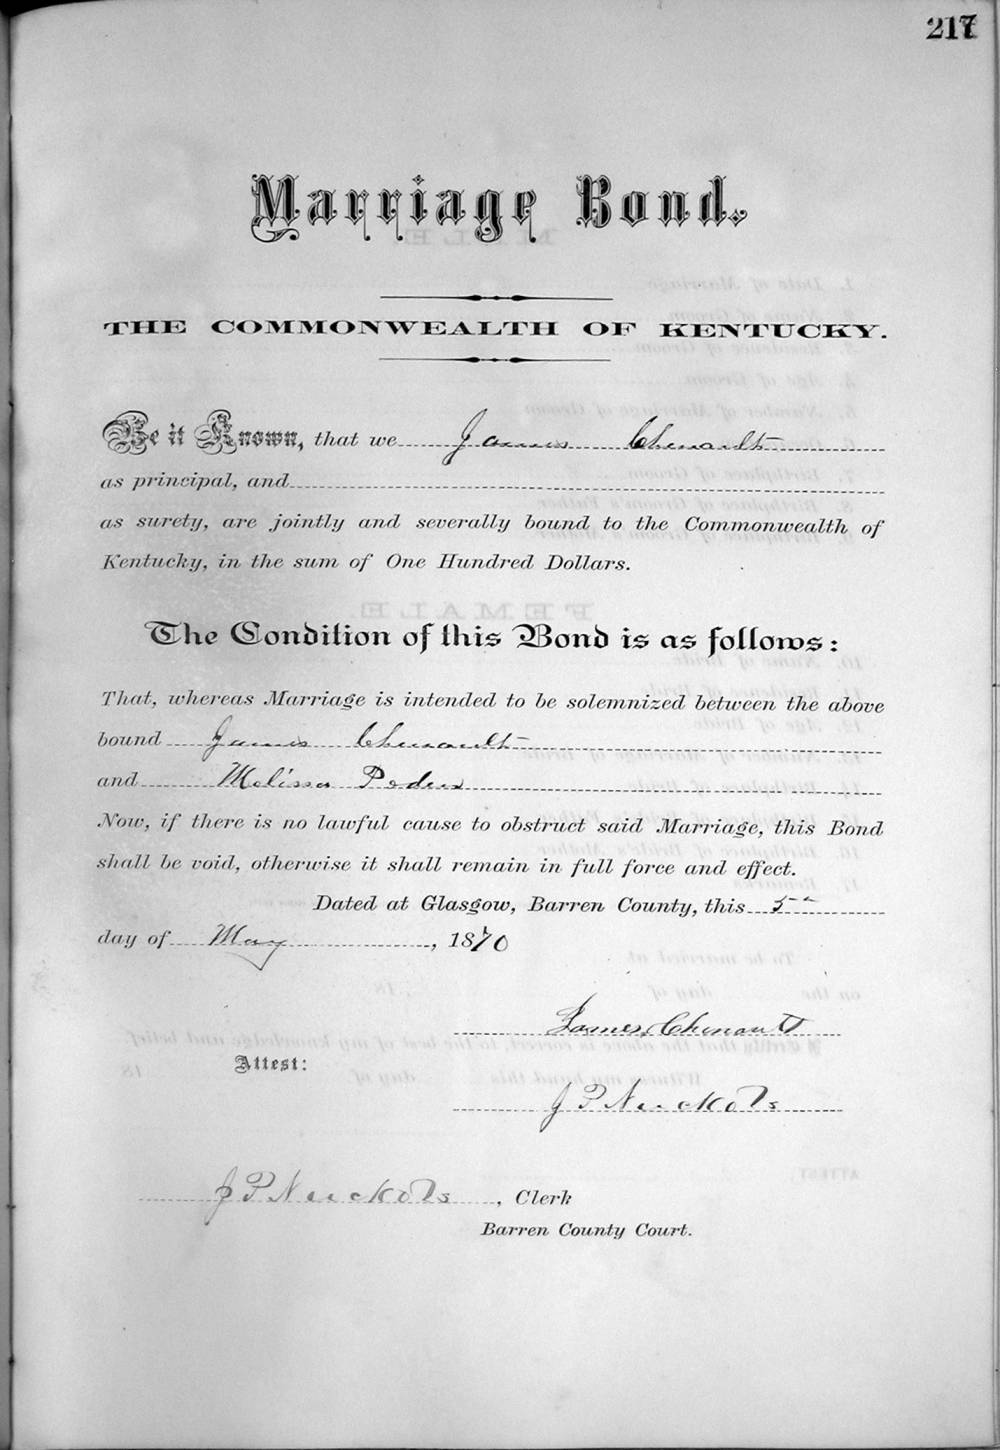 217
Marriage Bond.
THE COMMONWEALTH OF KENTUCKY.
Be it Known, that we James Chenault
as principal, and
as surety, are jointly and severally bound to the Commonwealth of
Kentucky, in the sum of One Hundred Dollars.
The Condition of this Bond is as follows:
That, whereas Marriage is intended to be solemnized between the above
bound James Chenault
and Melissa Poden
Now, if there is no lawful cause to obstruct said Marriage, this Bond
shall be void, otherwise it shall remain in full force and effect.
Dated at Glasgow, Barren County, this 5th
day of May, 1870
James Chenault
Attest:
J P Nuckols
J P Nuckols, Clerk
Barren County Court.